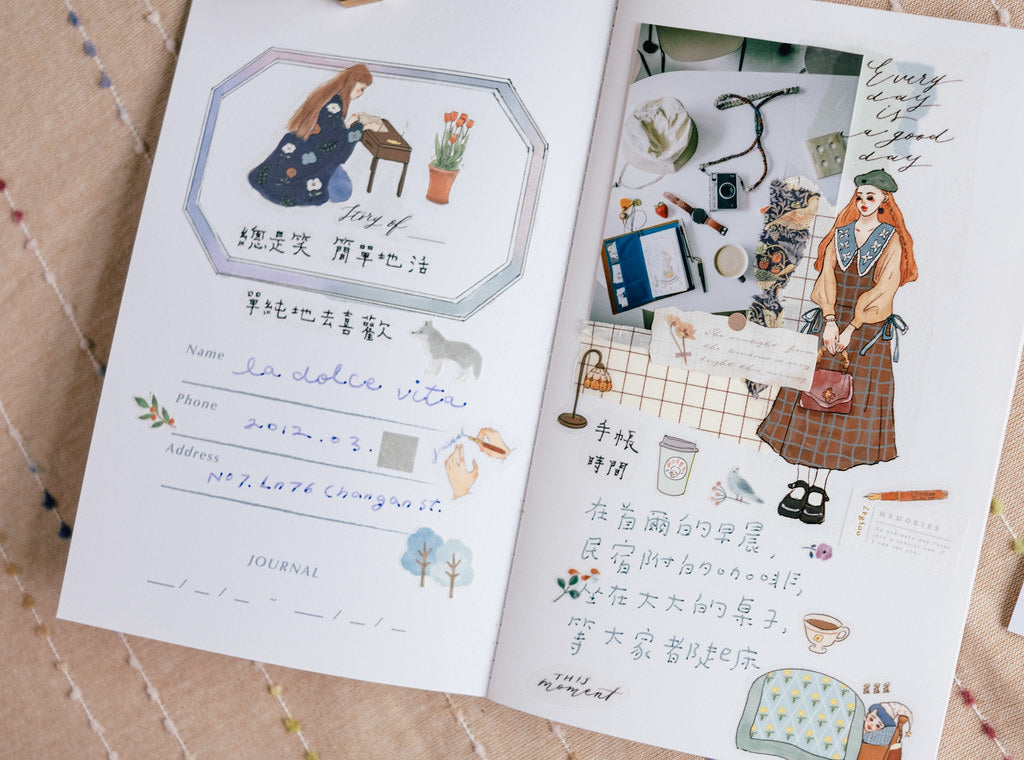 Story of
總是笑 簡單地活
單純地去喜歡
Name
la dolce vita
Phone
2012.03.
Address
No7. Ln76 Changan st.
journal
JOURNAL
Every
day
is
a good
day
手帳
時間
在首爾的早晨，
民宿附的咖啡，
坐在大大的桌子，
等大家都起床
THIS
moment
nos847
MEMORIES